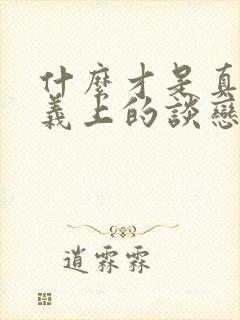 什麼才是真
義上的談戀
逍霖霖